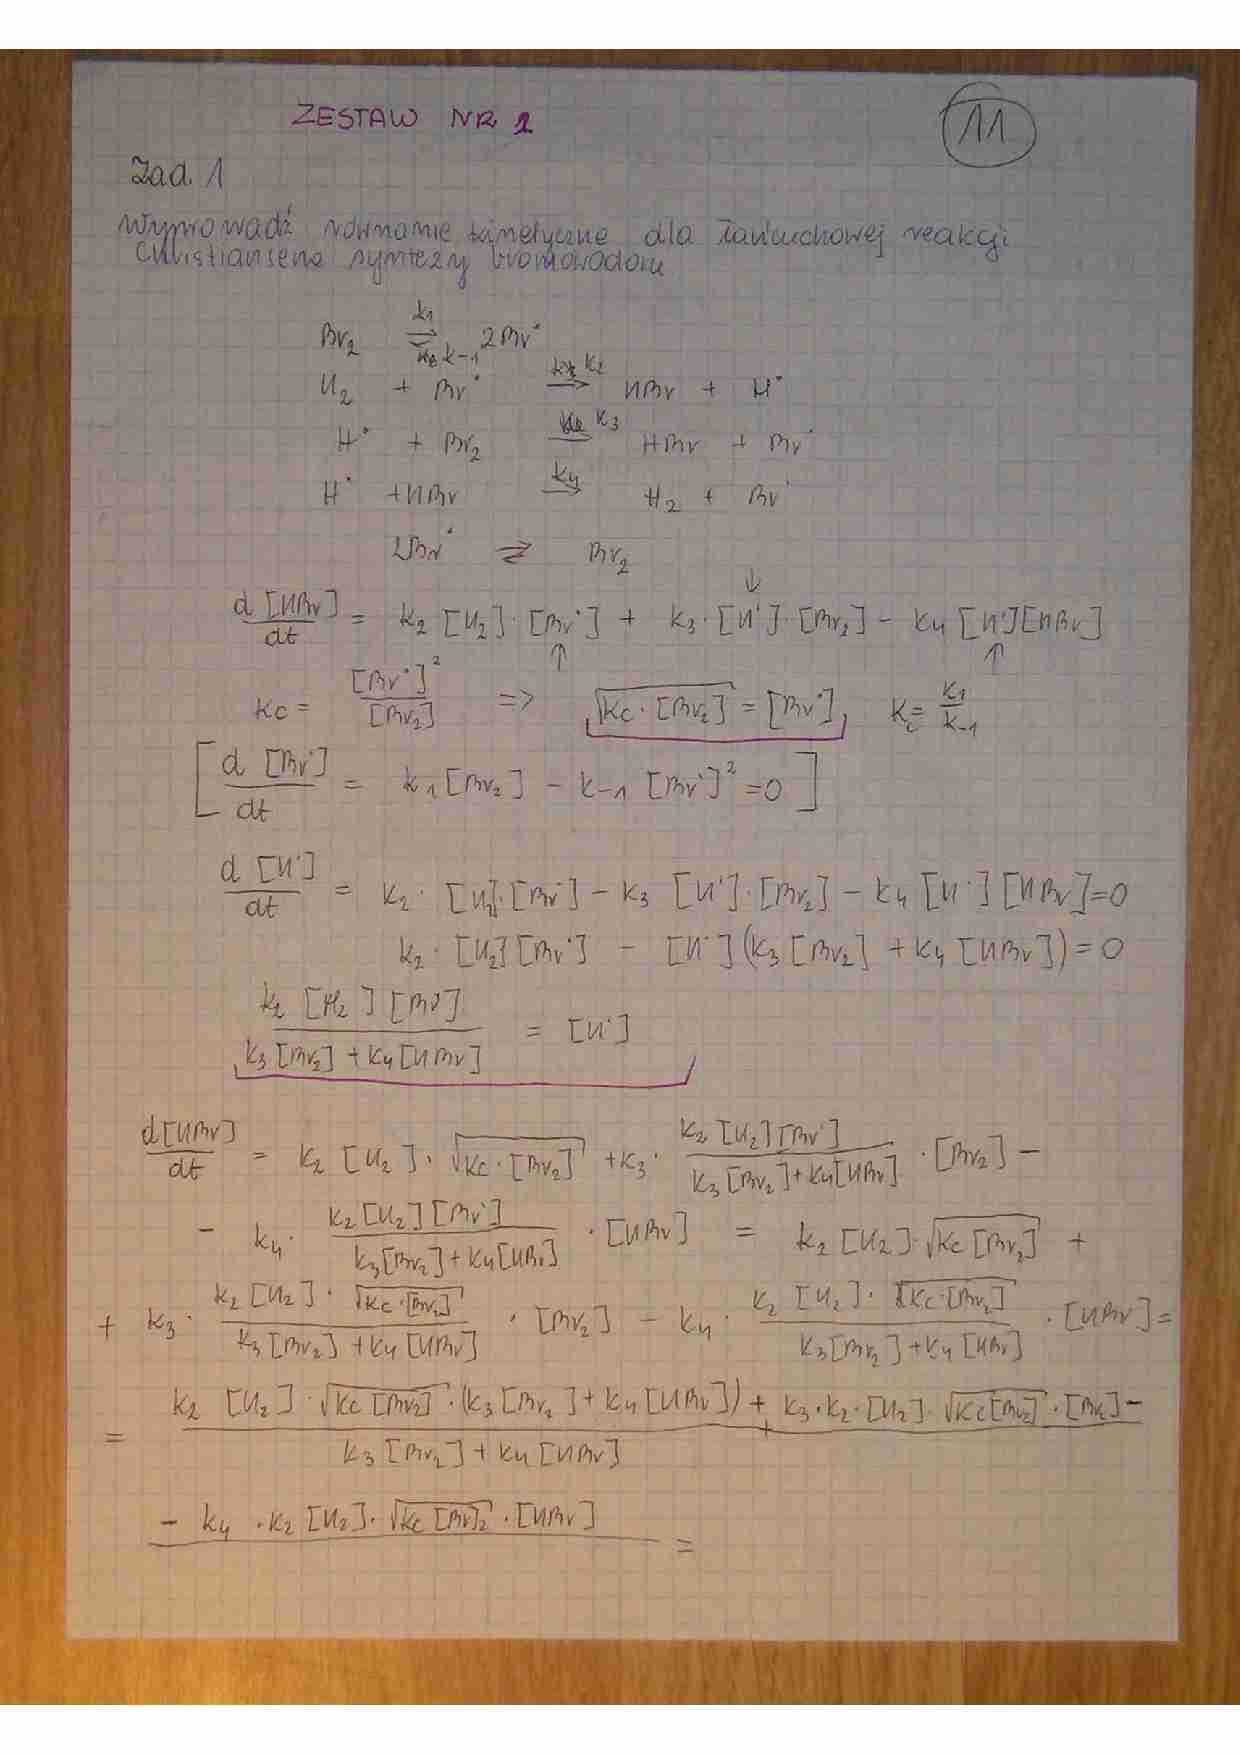 ZESTAW NR 1
11
Zad. 1
Wyprowadź równanie kinetyczne dla łańcuchowej reakcji
Christiansena syntezy bromowodoru
Br₂ ⇌ 2Br• k₁ k₋₁
H₂ + Br• → HBr + H• k₂
H• + Br₂ → HBr + Br• k₃
H• + HBr → H₂ + Br• k₄
2Br• ⇌ Br₂
d[HBr]/dt = k₂[H₂]·[Br•] + k₃·[H•]·[Br₂] − k₄[H•][HBr]
Kc = [Br•]²/[Br₂] => √(Kc·[Br₂]) = [Br•] Kc = k₁/k₋₁
[d[Br•]/dt = k₁[Br₂] − k₋₁[Br•]² = 0]
d[H•]/dt = k₂·[H₂]·[Br•] − k₃[H•]·[Br₂] − k₄[H•][HBr] = 0
k₂·[H₂][Br•] − [H•](k₃[Br₂] + k₄[HBr]) = 0
k₂[H₂][Br•]/(k₃[Br₂] + k₄[HBr]) = [H•]
d[HBr]/dt = k₂[H₂]·√(Kc·[Br₂]) + k₃·k₂[H₂][Br•]/(k₃[Br₂] + k₄[HBr])·[Br₂] −
− k₄·k₂[H₂][Br•]/(k₃[Br₂] + k₄[HBr])·[HBr] = k₂[H₂]·√(Kc[Br₂]) +
+ k₃·k₂[H₂]·√(Kc·[Br₂])/(k₃[Br₂] + k₄[HBr])·[Br₂] − k₄·k₂[H₂]·√(Kc·[Br₂])/(k₃[Br₂] + k₄[HBr])·[HBr] =
= k₂[H₂]·√(Kc[Br₂])·(k₃[Br₂] + k₄[HBr]) + k₃·k₂·[H₂]·√(Kc[Br₂])·[Br₂] −
k₃[Br₂] + k₄[HBr]
− k₄·k₂[H₂]·√(Kc[Br]₂)·[HBr] =